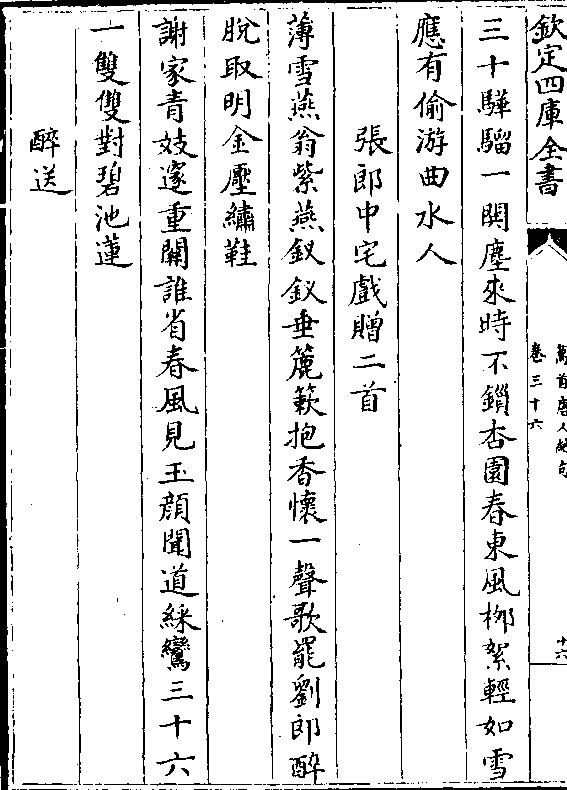 欽定四庫全書
萬首唐人絕句
卷三十六
十六
三十驊騮一閧塵來時不鎖杏園春東風栁絮輕如雪
應有偷游曲水人
張郎中宅戲贈二首
薄雪燕蓊紫燕釵釵垂簏簌抱香懷一聲歌罷劉郎醉
脫取明金壓繡鞋
謝家青妓邃重闗誰省春風見玉顔聞道綵鸞三十六
一雙雙對碧池蓮
醉送